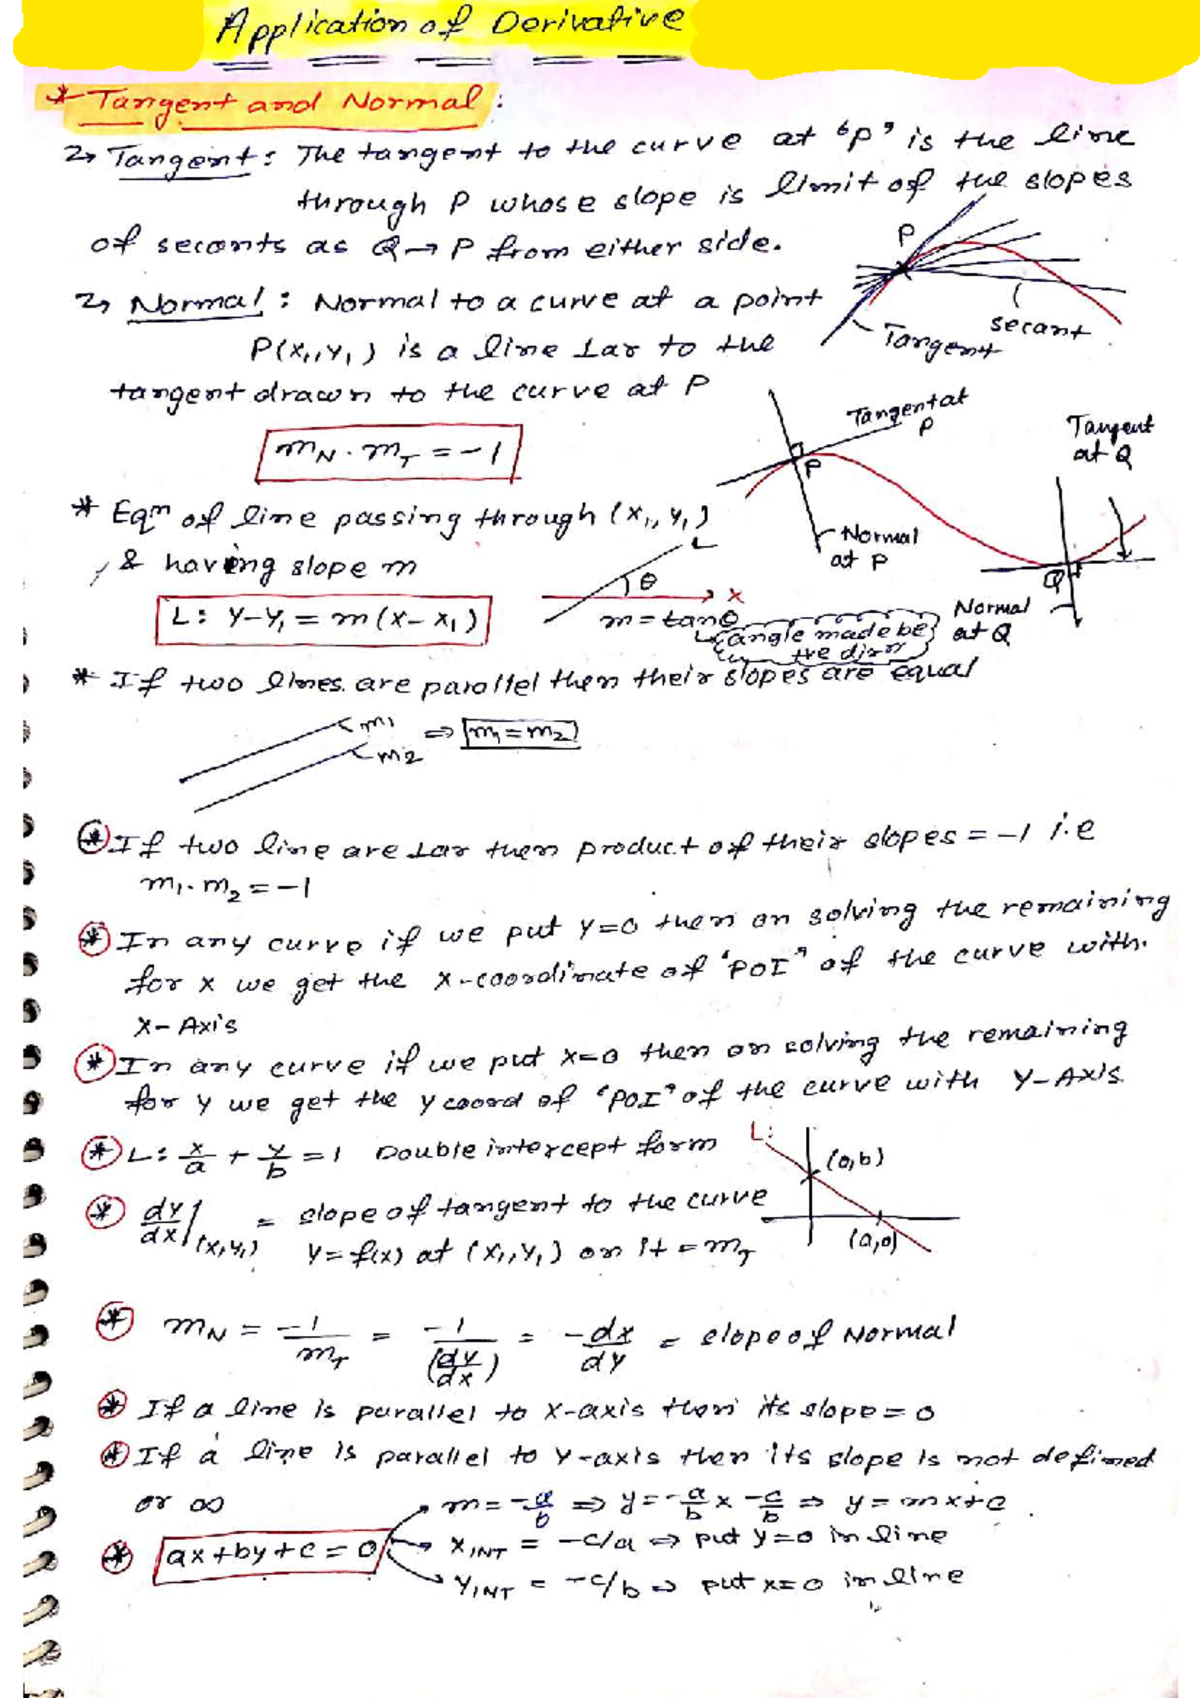 Application of Derivative
* Tangent and Normal :
Tangent : The tangent to the curve at 'P' is the line
through P whose slope is limit of the slopes
of secants as Q → P from either side.
P
secant
Tangent
Normal : Normal to a curve at a point
P(x₁,y₁) is a line ⊥ar to the
tangent drawn to the curve at P
m_N . m_T = -1
Tangent at
P
Tangent
at Q
P
Normal
at P
Q
Normal
at Q
* Eqⁿ of line passing through (x₁, y₁)
& having slope m
L: y-y₁ = m(x-x₁)
L
θ
x
m = tanθ
angle made by
+ve dirⁿ
* If two lines are parallel then their slopes are equal
m₁
m₂
⇒ m₁ = m₂
* If two line are ⊥ar then product of their slopes = -1 i.e
m₁. m₂ = -1
* In any curve if we put y=0 then on solving the remaining
for x we get the x-coordinate of "POI" of the curve with
X-Axis
* In any curve if we put x=0 then on solving the remaining
for y we get the y coord of 'POI' of the curve with Y-Axis
* L: x/a + y/b = 1 Double intercept form
L:
(0,b)
(a,0)
* dy/dx|(x₁,y₁) = slope of tangent to the curve
y = f(x) at (x₁,y₁) on it = m_T
* m_N = -1/m_T = -1/(dy/dx) = -dx/dy = slope of Normal
* If a line is parallel to x-axis then its slope = 0
* If a line is parallel to y-axis then its slope is not defined
or ∞
m = -a/b ⇒ y = -a/b x - c/b ⇒ y = mx+c
* ax+by+c = 0
x_INT = -c/a ⇒ put y=0 in line
y_INT = -c/b ⇒ put x=0 in line